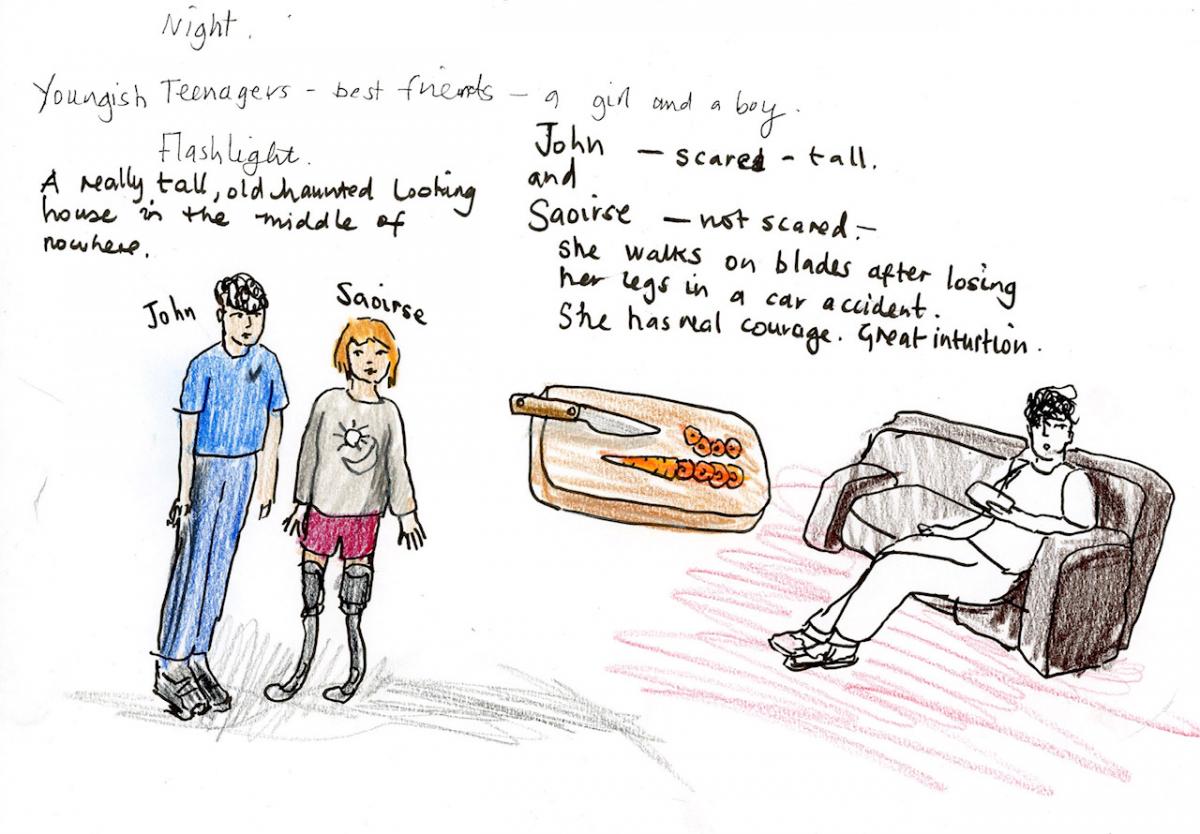 Night.
Youngish Teenagers - best friends - a girl and a boy.
Flashlight.
A really tall, old haunted looking
house in the middle of
nowhere.
John - scared - tall.
and
Saoirse - not scared. -
she walks on blades after losing
her legs in a car accident.
She has real courage. Great intuition.
John
Saoirse